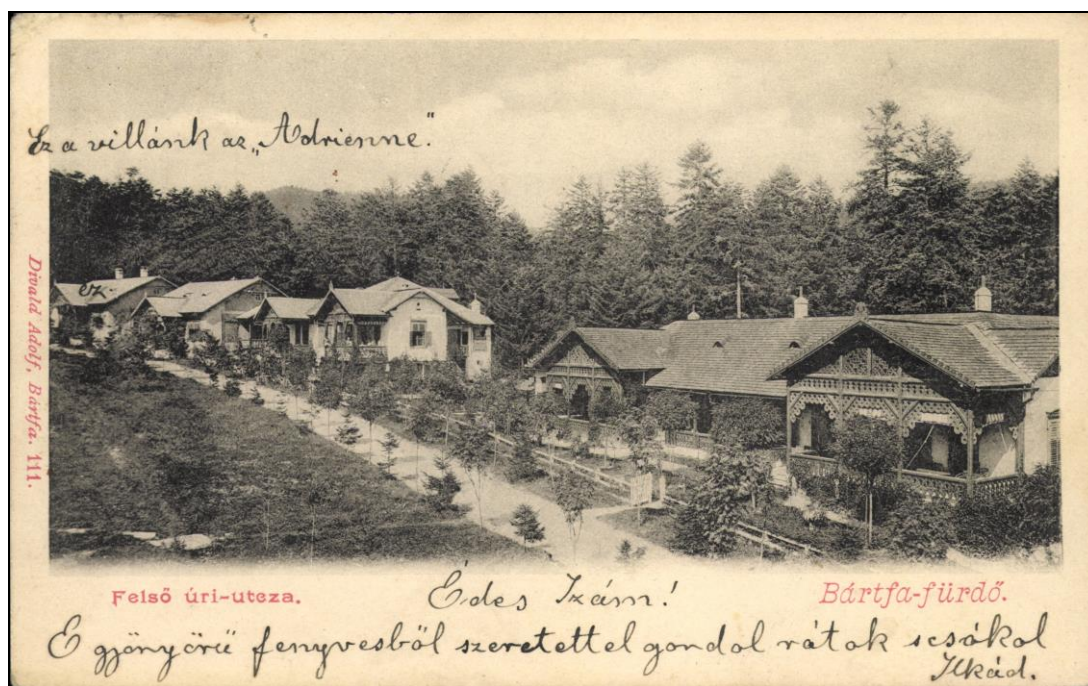 Ez a villánk az „Adrienne."
ez
Divald Adolf, Bártfa. 111.
Felső úri-utcza.
Bártfa-fürdő.
Édes Izám!
E gyönyörü fenyvesböl szeretettel gondol rátok s csókol
Ilkád.